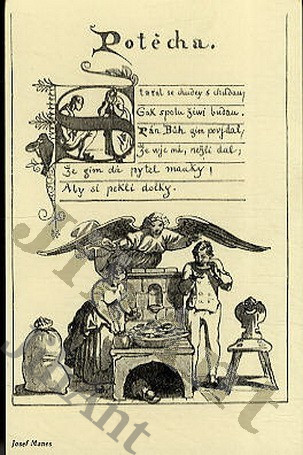 Potěcha.
Staral se chudey s chudau;
Gak spolu žiwi budau.
Pán Bůh gim powjdal,
Že wjc má, nežli dal;
Že gim dá pytel mauky,
Aby si pekli dolky.
Josef Manes